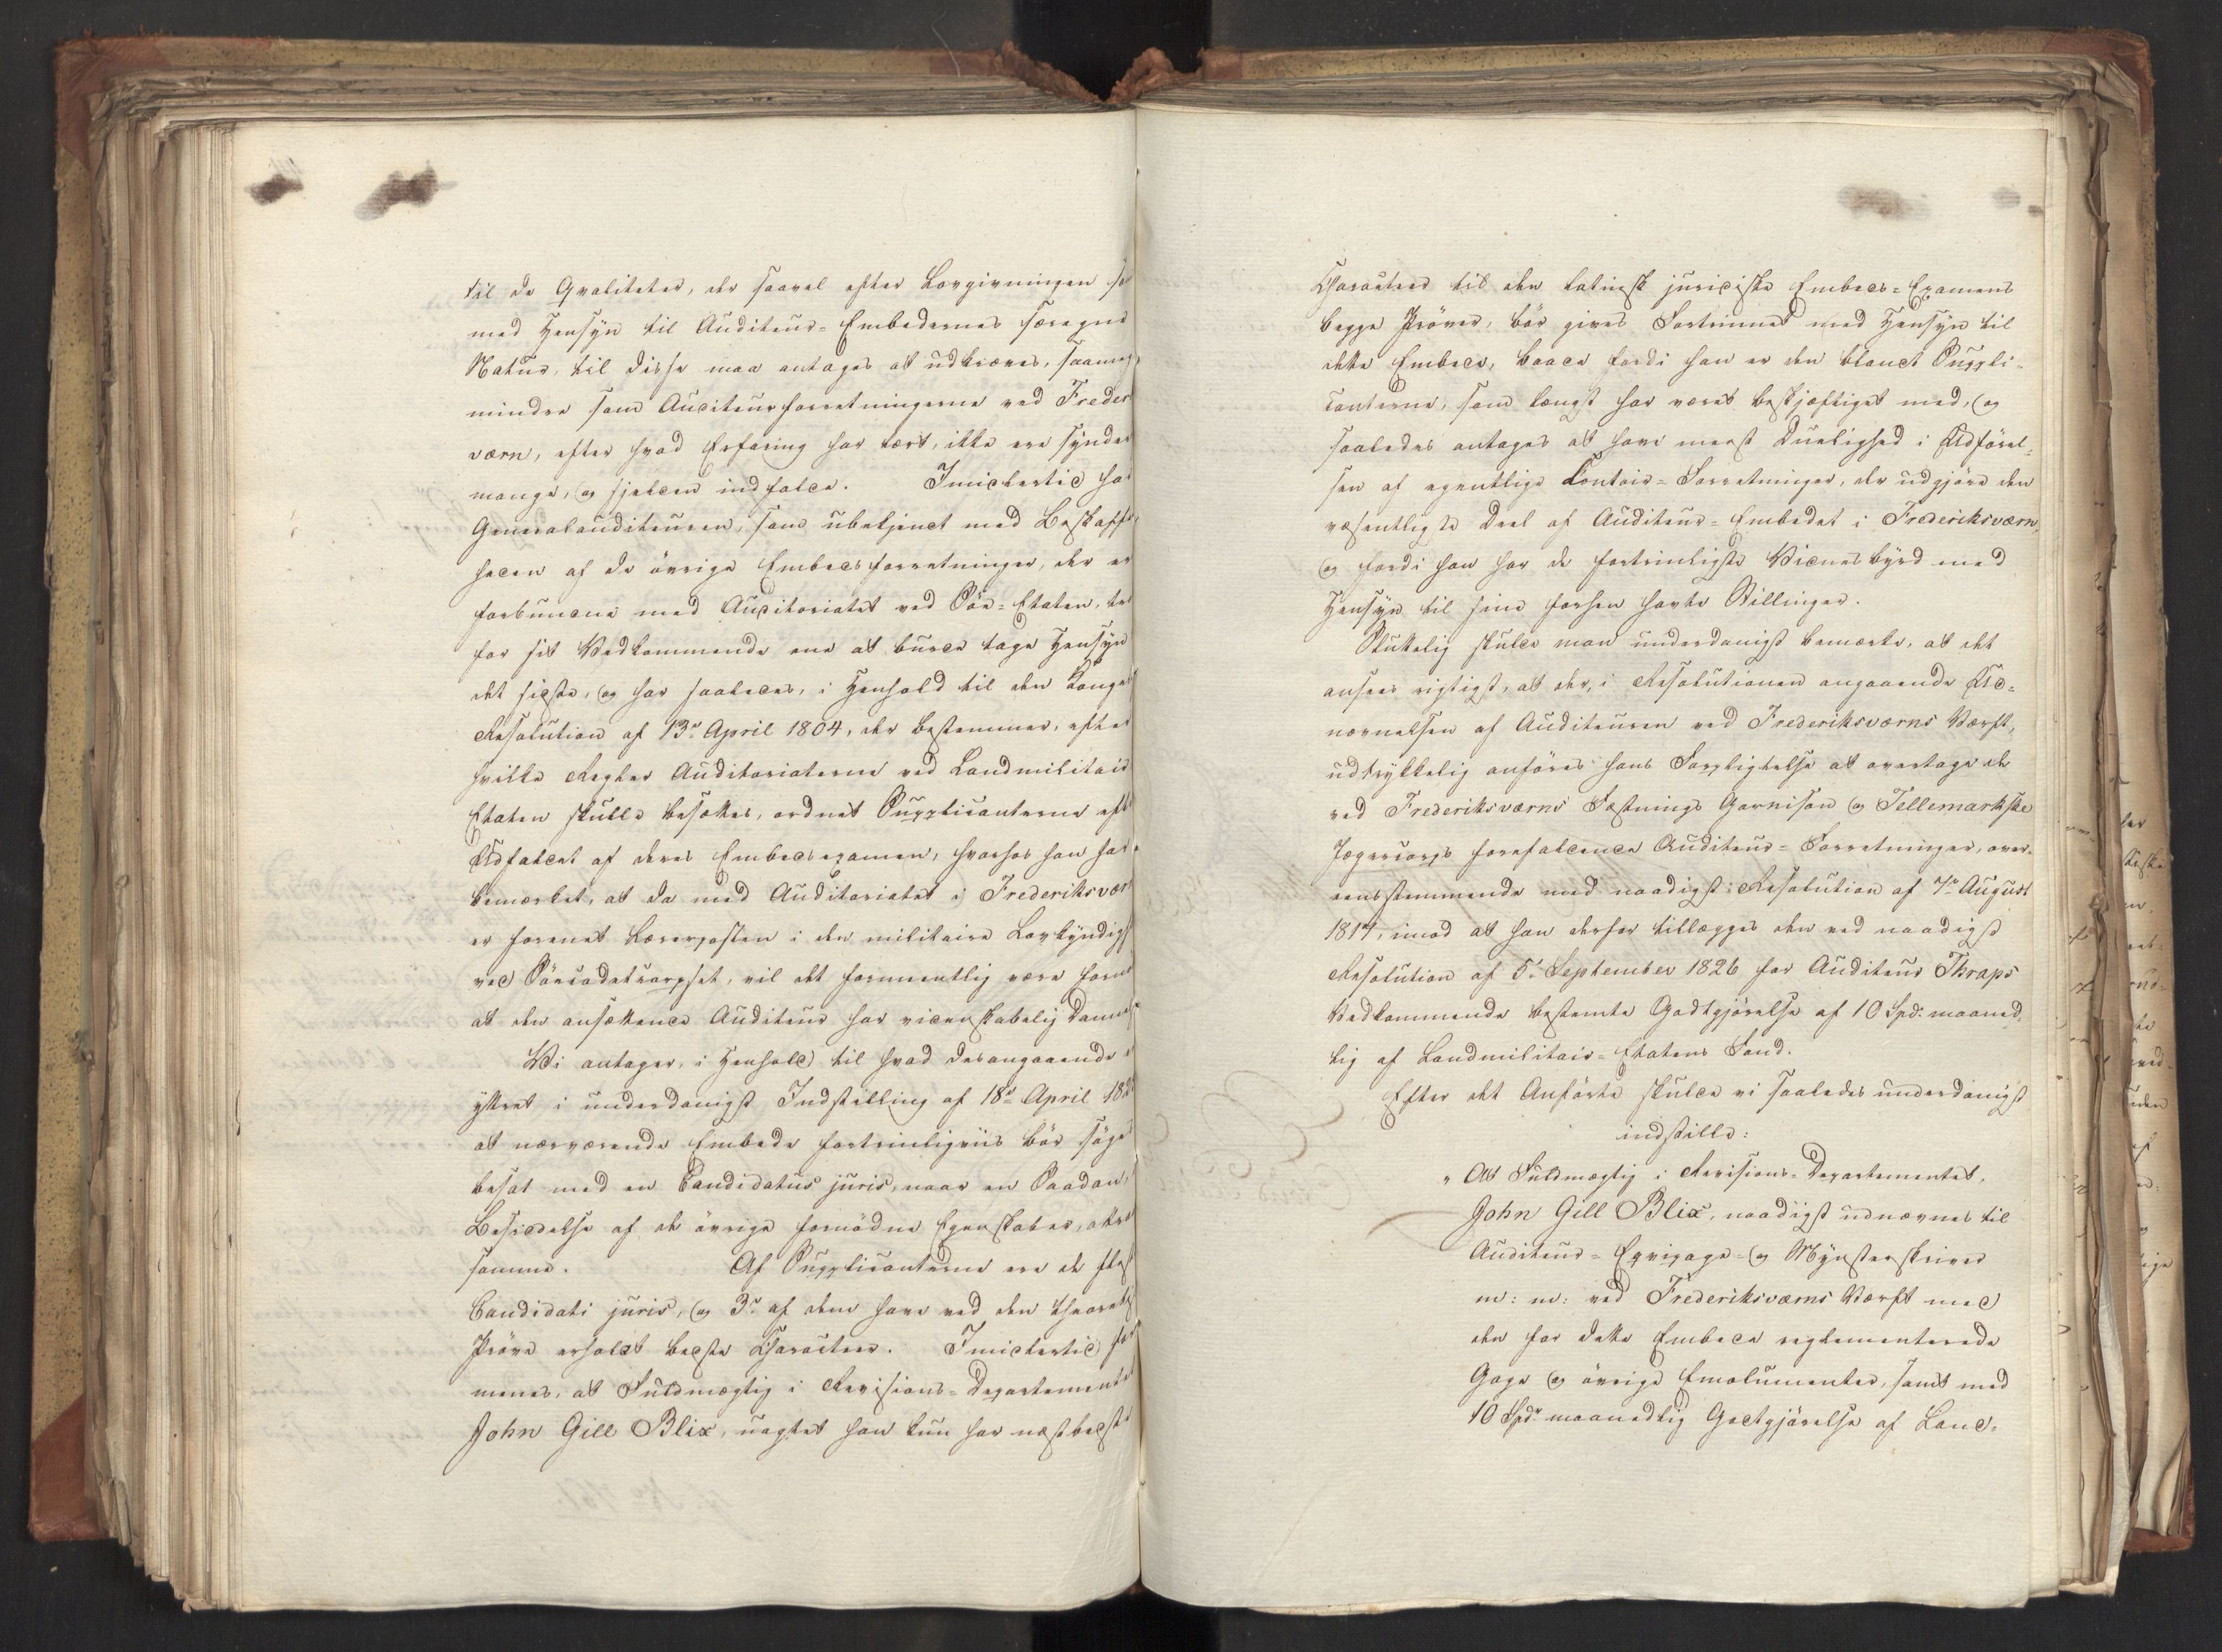 til de Qvaliteter, der saavel efter Lovgivningen so
med Hensyn til Auditeur-Embedernes særegne
Natur, til disse maa antages at udkræves, saameg
mindre som Auditeurforretningerne ved Freder
værn, efter hvad Erfaring har lært, ikke ere synder
mange, og sjelden indfalde. Imidlertid ha
Generalauditeuren, som ubekjendt med Beskaffe
heden af de övrige Embedsforretninger, der er
forbundne med Auditoriatet ved Söe-Etaten,
for sit Vedkommende ene at burde tage Hensyn
det sidste, og har saaledes, i Henhold til den Konge
Resolution af 13de April 1804, der bestemmer, efter
hvilke Regler Auditoriaterne ved Landmilitair
Etaten skulle besættes, ordnet Supplicanterne eft
Udfaldet af deres Embedsexamen, hvorhos han har
bemærket, at da med Auditoriatet i Frederiksvær
er forenet Lærerposten i den militaire Lovkyndigh
ved Söecadetcorpset, vil det formeentlig være forn
at den ansættende Auditeur har videnskabelig Dannel
Vi antager, i Henhold til hvad desangaaende e
yttret i underdanigst Indstilling af 18de April 182
at nærværende Embede fortrinligviis bör söges
besat med en Candidatus juris, naar en Saadan,
Besiddelse af de övrige fornödne Egenskaber, attra
samme. Af Supplicanterne ere de flest
Candidati juris, og 3de af dem have ved den theoreti
Pröve erholdt bedste Characteer. Imidlertid for
menes, at Fuldmægtig i Revisions-Departementet
John Gill Blix, uagtet han kun har næstbedste
Characteer til den latinsk juridiske Embeds-Examens
begge Pröver, bör gives Fortrinnet med Hensyn til
dette Embede, baade fordi han er den blandt Suppli-
canterne, som længst har været beskjæftiget med, og
saaledes antages at have meest Duelighed i Udförel-
sen af egentlige Contoir-Forretninger, der udgjöre den
væsentligste Deel af Auditeur-Embedet i Frederiksværn,
og fordi han har de fortrinligste Vidnesbyrd med
Hensyn til sine forhen havte Stillinger.
Sluttelig skulde man underdanigst bemærke, at det
ansees rigtigst, at der, i Resolutionen angaaende Ud-
nævnelsen af Auditeuren ved Frederiksværns Værft,
udtrykkelig anföres hans Forpligtelse at overtage de
ved Frederiksværns Fæstnings Garnison og Tellemarkske
Jægercorps forefaldende Auditeur-Forretninger, over-
eensstemmende med naadigst Resolution af 7de August
1817, imod at han derfor tillægges den ved naadigst
Resolution af 5te September 1826 for Auditeur Thraps
Vedkommende bestemte Godtgjörelse af 10 Spd. maaned-
lig af Landmilitair-Etatens Fond.
Efter det Anförte skulde vi saaledes underdanigst
indstille:
"At Fuldmægtig i Revisions-Departementet,
John Gill Blix, naadigst udnævnes til
Auditeur-Eqvipage- og Mynsterskriver
m: m: ved Frederiksværns Værft med
den for dette Embede reglementerede
Gage og övrige Emolumenter, samt med
10 Spdr. maanedlig Godtgjörelse af Land-